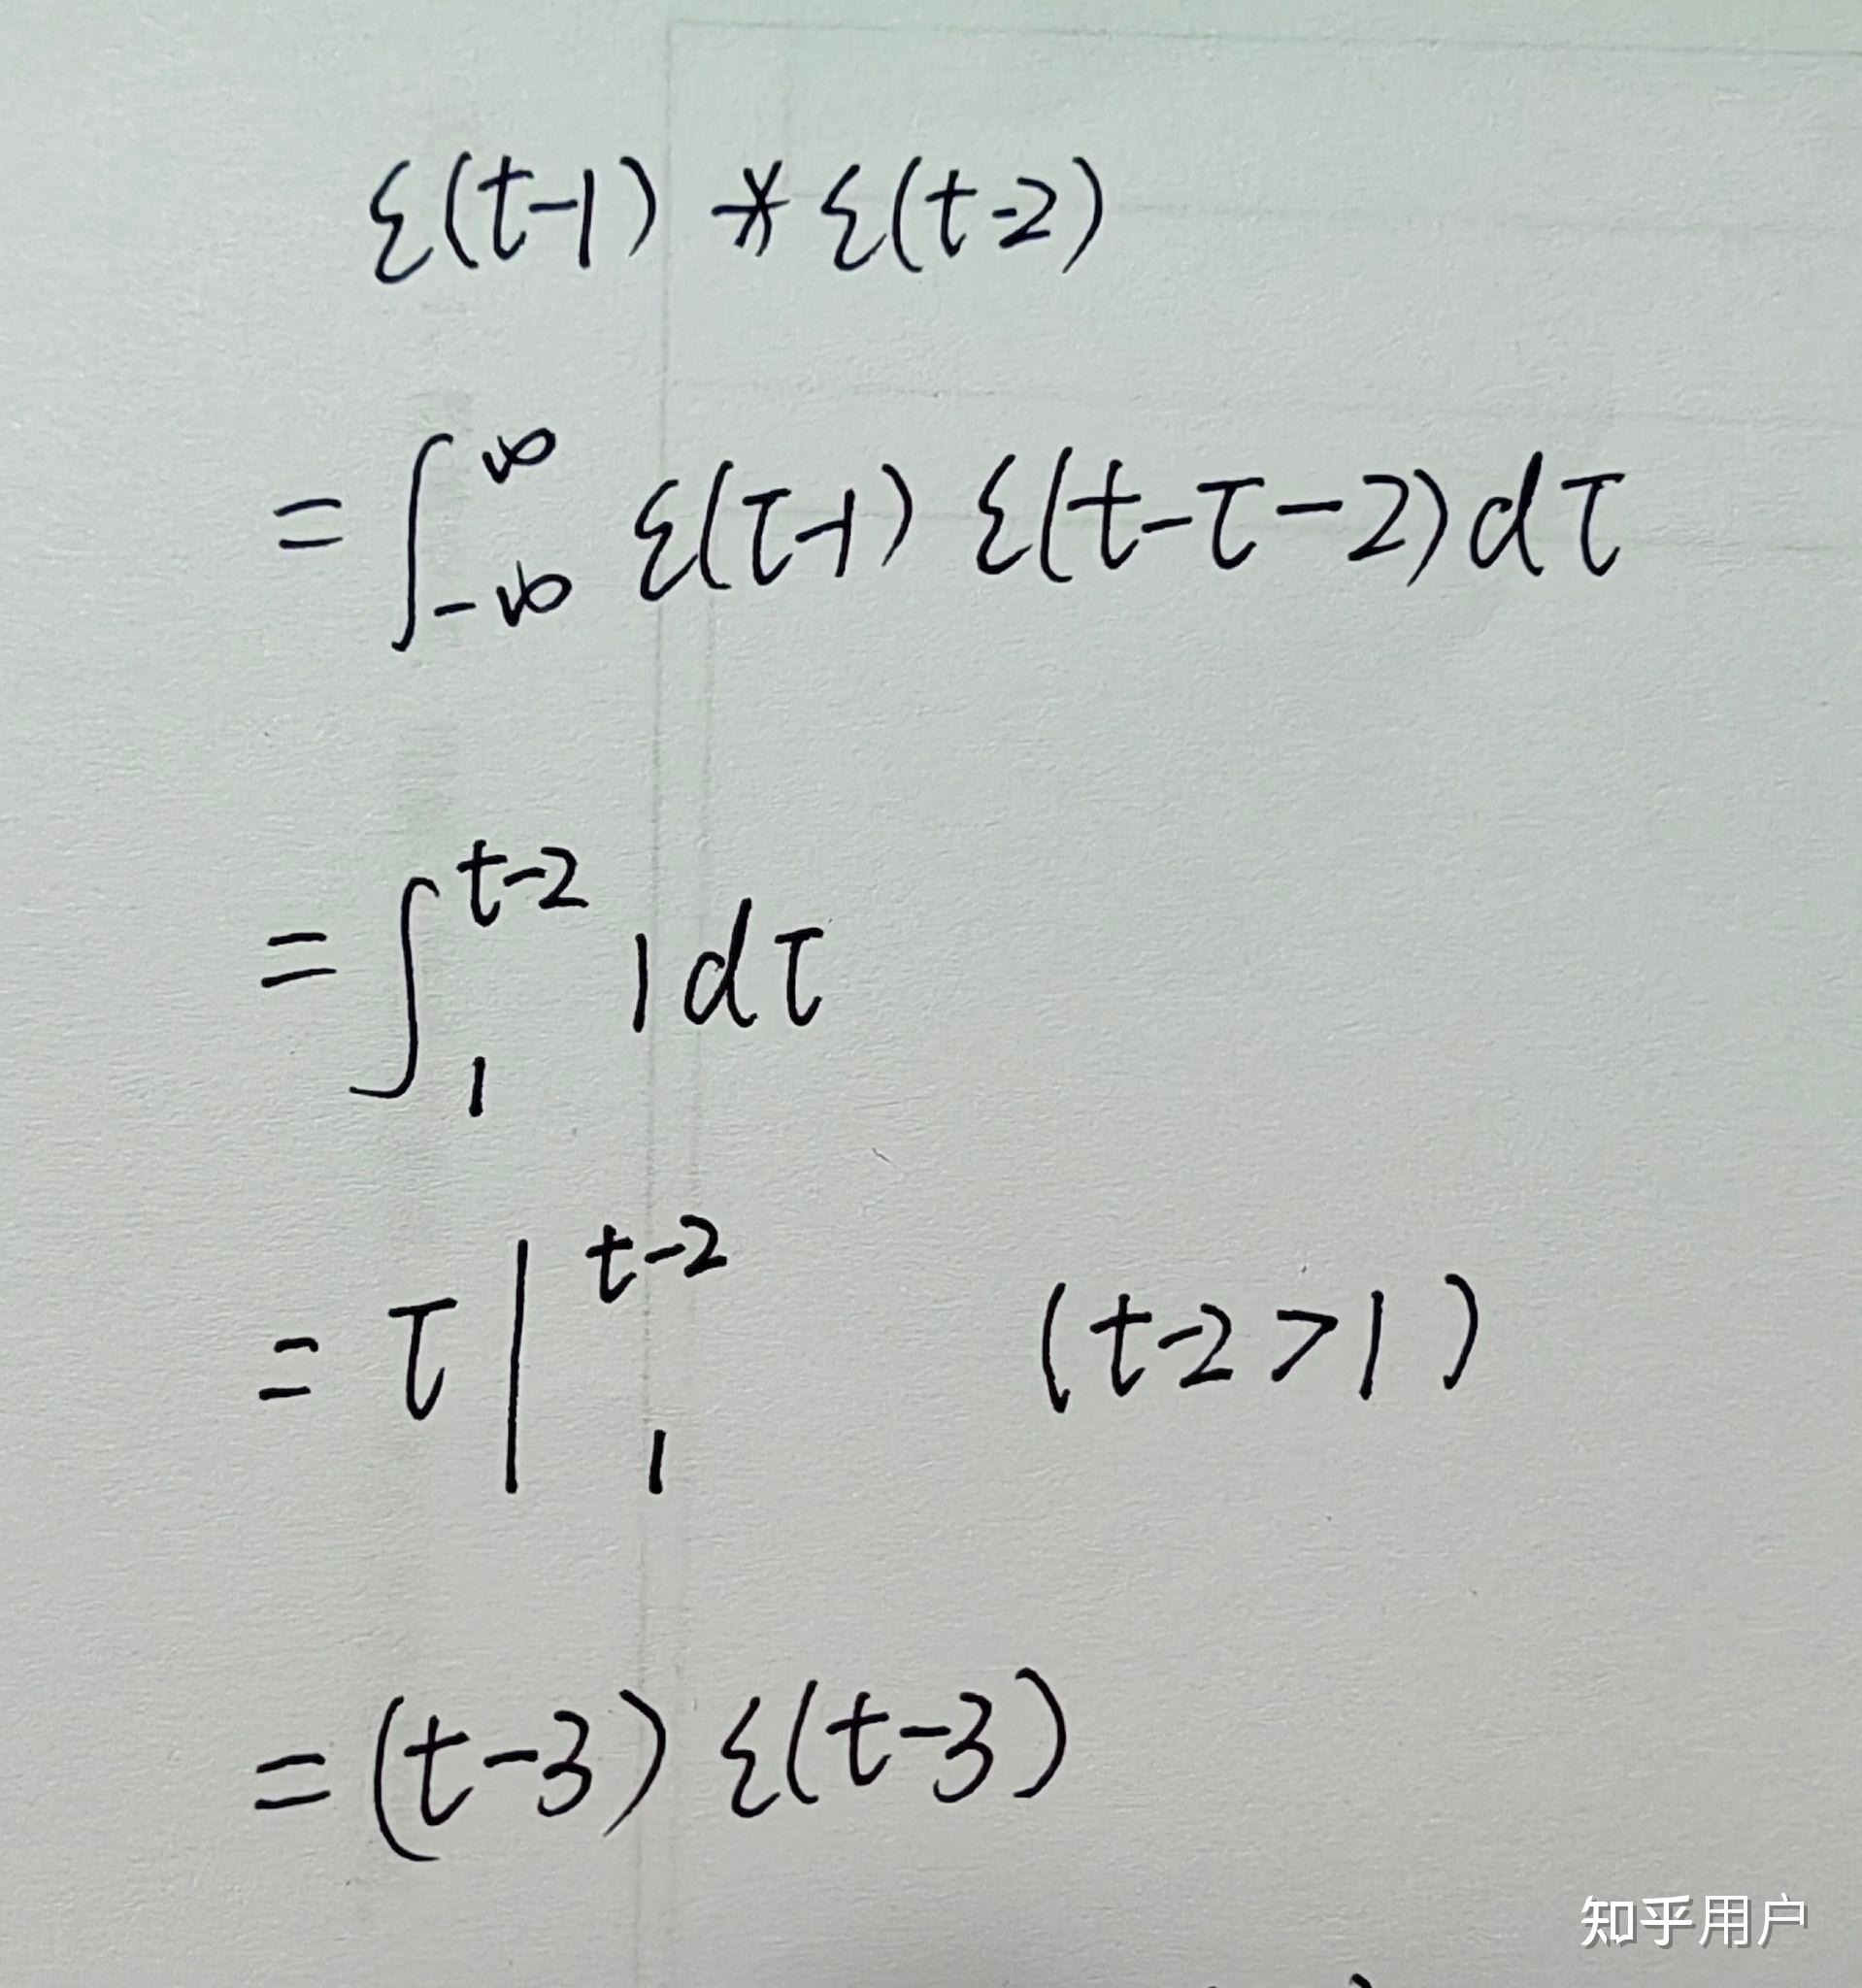 ε(t-1) * ε(t-2)
= ∫_{-∞}^{∞} ε(τ-1) ε(t-τ-2) dτ
= ∫_{1}^{t-2} 1 dτ
= τ |_{1}^{t-2} (t-2>1)
= (t-3) ε(t-3)
知乎用户